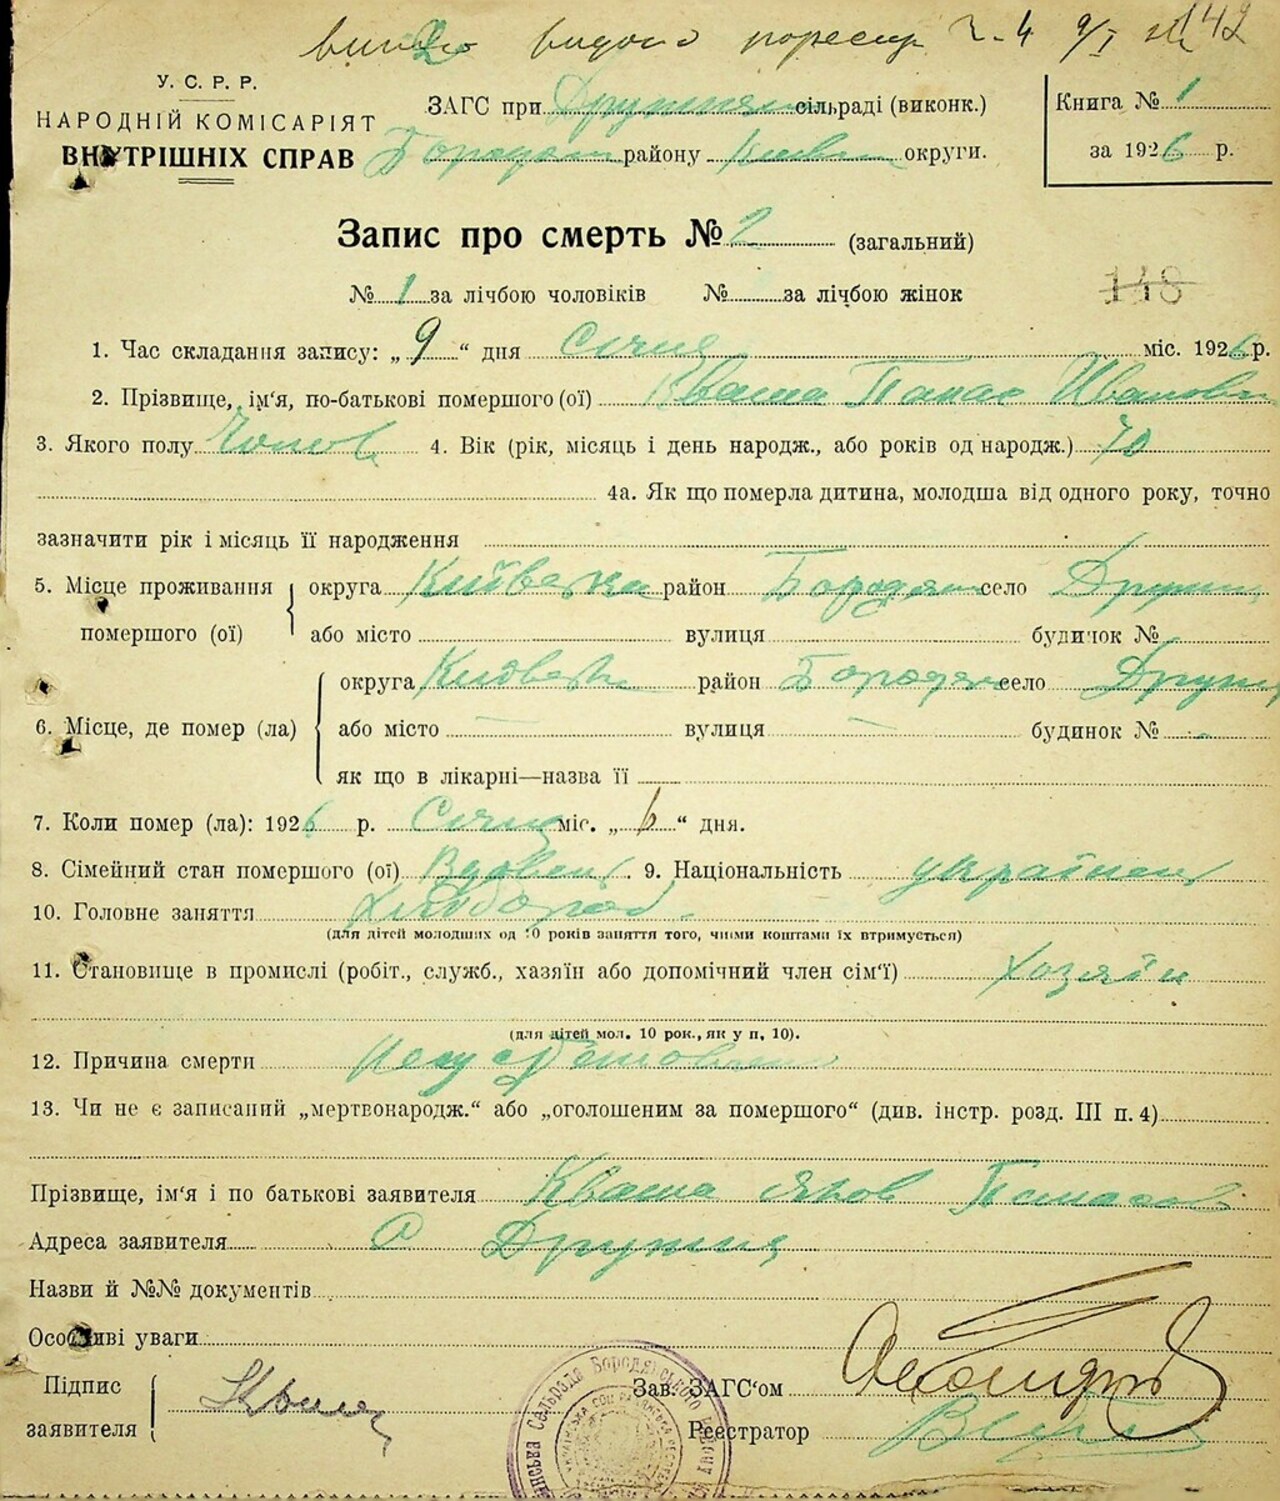 У. С. Р. Р.
НАРОДНІЙ КОМІСАРІЯТ
ВНУТРІШНІХ СПРАВ
ЗАГС при сільраді (виконк.)
району округи.
Книга № 1
за 1926 р.
Запис про смерть № 2 (загальний)
№ 1 за лічбою чоловіків № за лічбою жінок
148
1. Час складання запису: „ 9 “ дня Січня міс. 1926 р.
2. Прізвище, ім‘я, по-батькові помершого (ої) Кваша Панас Іванови
3. Якого полу Чолов 4. Вік (рік, місяць і день народж., або років од народж.) 70
4а. Як що померла дитина, молодша від одного року, точно
зазначити рік і місяць її народження
5. Місце проживання помершого (ої) округа Київска район Бородян село Дружня
або місто вулиця будинок №
6. Місце, де помер (ла) округа Київск район Бородян село Дружня
або місто — вулиця — будинок № -
як що в лікарні—назва її
7. Коли помер (ла): 1926 р. Січня міс. „ 6 “ дня.
8. Сімейний стан помершого (ої) Вдовець 9. Національність українець
10. Головне заняття Хлібороб.
(для дітей молодших од 10 років заняття того, чиїми коштами їх втримується)
11. Становище в промислі (робіт., служб., хазяїн або допомічний член сім‘ї) Хозяїн
(для дітей мол. 10 рок., як у п. 10).
12. Причина смерти
13. Чи не є записаний „мертвонародж.“ або „оголошеним за помершого“ (див. інстр. розд. III п. 4)
Прізвище, ім‘я і по батькові заявителя Кваша Яков Панасов
Адреса заявителя С Дружня
Назви й №№ документів
Особливі уваги
Підпис заявителя Кваша
Зав. ЗАГС‘ом
Реєстратор